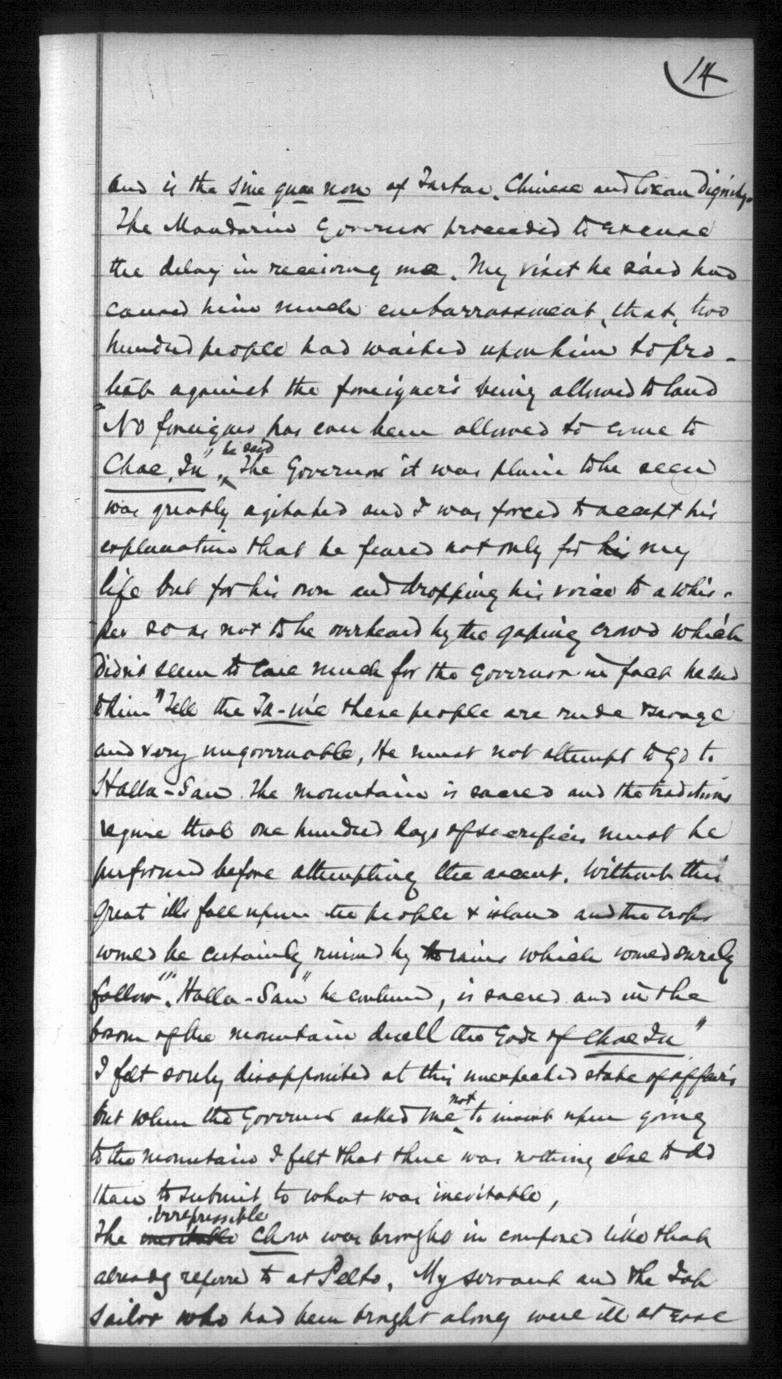 14
and is the sine quae non of Tartar, Chinese and Corean dignity.
The Mandarin Governor proceeded to excuse
the delay in receiving me. My visit he said had
caused him much embarrassment, that, two
hundred people had waited upon him to pro-
test against the foreigner's being allowed to land
"No foreigner has ever been allowed to come to
Chae Ju" he said The Governor it was plain to be seen
was greatly agitated and I was forced to accept his
explanation that he feared not only for my
life but for his own and dropping his voice to a whis-
per so as not to be overheard by the gaping crowd which
didn't seem to care much for the Governor in fact he said
"Tell the Ta-in'e these people are rude & savage
and very ungovernable, He must not attempt to go to
Halla-San. The mountain is sacred and the traditions
require that one hundred days of sacrifices must be
performed before attempting the ascent. Without this
great ills fall upon the people & island and the crops
would be certainly ruined by rains which would surely
follow". "Halla-San" he continued, is sacred and in the
bosom of the mountain dwell the Gods of Chae Ju"
I felt sorely disappointed at this unexpected state of affairs
but when the Governor asked me not to insist upon going
to the mountain I felt that there was nothing else to do
than to submit to what was inevitable,
The irrepressible Chow was brought in composed like that
already referred to at Selto. My servant and the Jap
sailor who had been brought along were ill at ease